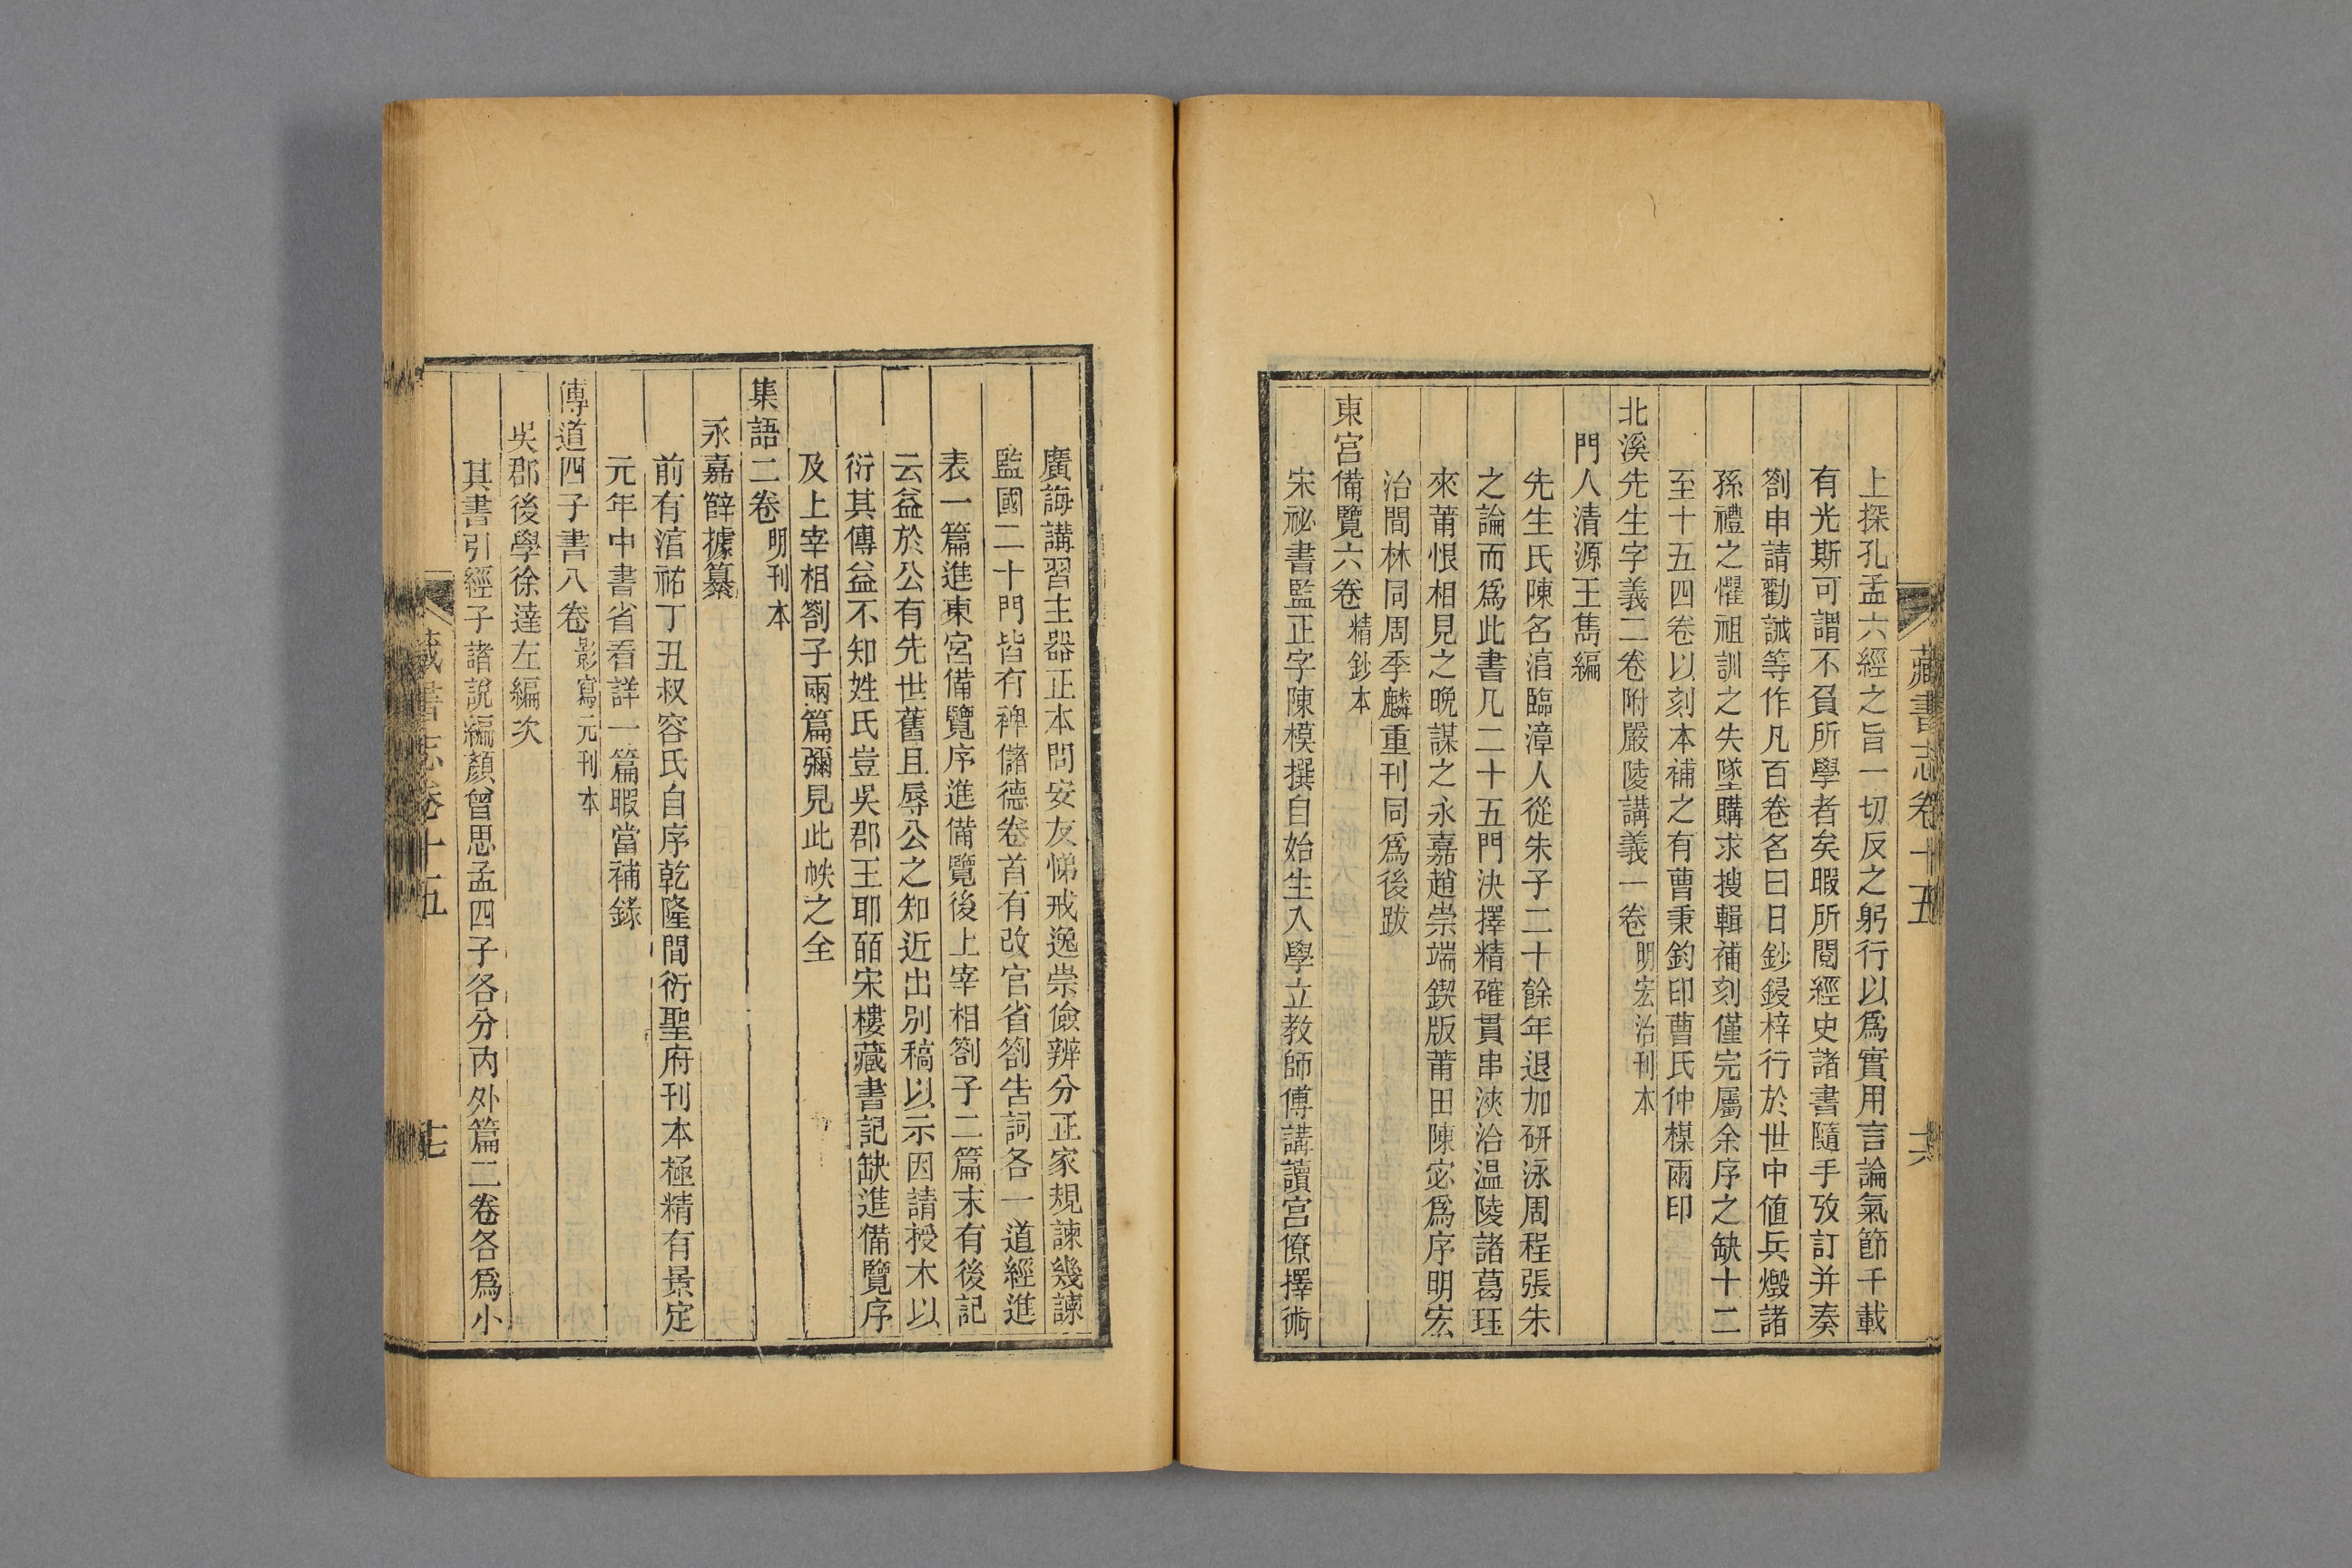 藏書志卷十五
上探孔孟六經之旨一切反之躬行以爲實用言論氣節千載
有光斯可謂不負所學者矣暇所閱經史諸書隨手攷訂并奏
劄申請勸誡等作凡百卷名曰日鈔鋟梓行於世中値兵燬諸
孫禮之懼祖訓之失墜購求搜輯補刻僅完屬余序之缺十二
至十五四卷以刻本補之有曹秉鈞印曹氏仲楳兩印
北溪先生字義二卷附嚴陵講義一卷明宏治刊本
門人清源王雋編
先生氏陳名淳臨漳人從朱子二十餘年退加研泳周程張朱
之論而爲此書凡二十五門決擇精確貫串浹洽温陵諸葛珏
來莆恨相見之晚謀之永嘉趙崇端鍥版莆田陳宓爲序明宏
治間林同周季麟重刊同爲後跋
東宮備覽六卷精鈔本
宋祕書監正字陳模撰自始生入學立教師傅講讀宫僚擇術
廣誨講習主器正本問安友悌戒逸崇儉辨分正家規諫幾諫
監國二十門皆有裨儲德卷首有改官省劄告詞各一道經進
表一篇進東宮備覽序進備覽後上宰相劄子二篇末有後記
云益於公有先世舊且辱公之知近出別稿以示因請授木以
衍其傳益不知姓氏豈吳郡王耶皕宋樓藏書記缺進備覽序
及上宰相劄子兩篇彌見此帙之全
集語二卷明刊本
永嘉薛據纂
前有湻祐丁丑叔容氏自序乾隆間衍聖府刊本極精有景定
元年中書省看詳一篇暇當補錄
傳道四子書八卷影寫元刊本
吳郡後學徐達左編次
其書引經子諸說編顏曾思孟四子各分內外篇二卷各爲小
藏書志卷十五